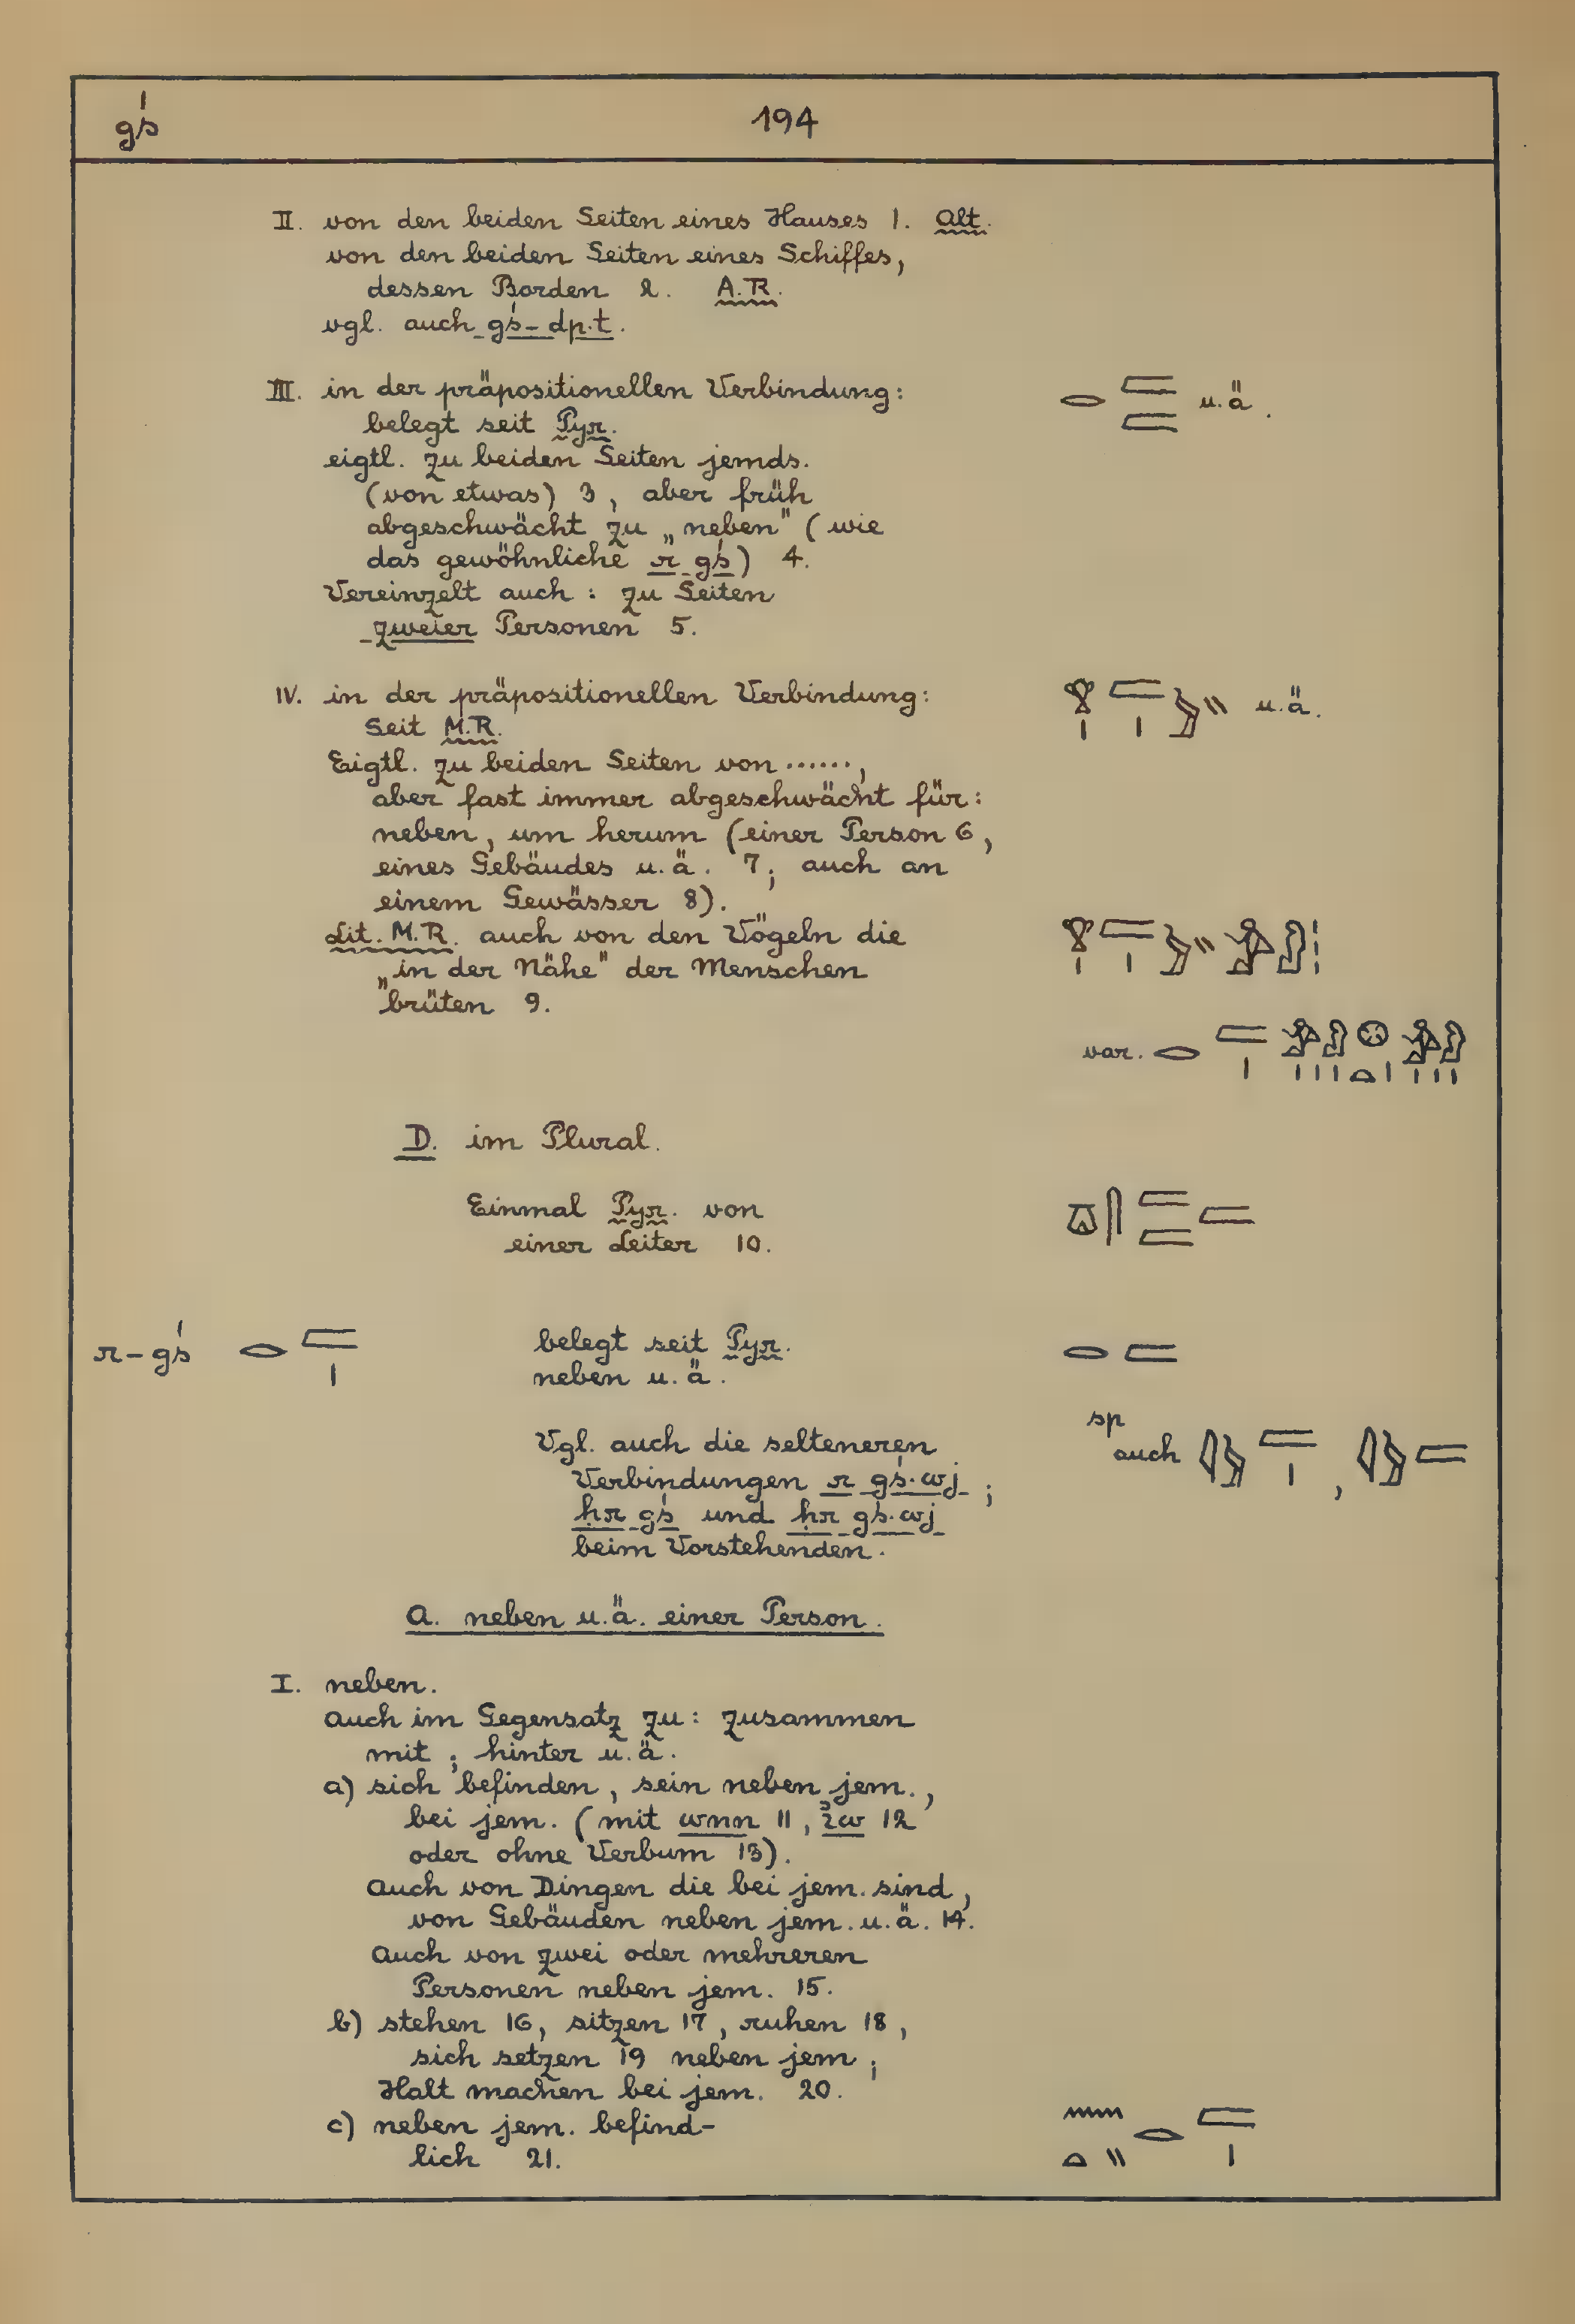 gś
194
II. von den beiden Seiten eines Hauses 1. Alt.
von den beiden Seiten eines Schiffes,
dessen Borden 2. A.R.
vgl. auch gś-dp.t.
III. in der präpositionellen Verbindung: 𓂋𓐛𓐛 u.ä.
belegt seit Pyr.
eigtl. zu beiden Seiten jemds.
(von etwas) 3, aber früh
abgeschwächt zu „neben" (wie
das gewöhnliche r gś) 4.
Vereinzelt auch: zu Seiten
zweier Personen 5.
IV. in der präpositionellen Verbindung: u.ä.
Seit M.R.
Eigtl. zu beiden Seiten von ......,
aber fast immer abgeschwächt für:
neben, um herum (einer Person 6,
eines Gebäudes u.ä. 7; auch an
einem Gewässer 8).
Lit. M.R. auch von den Vögeln die
„in der Nähe" der Menschen
brüten 9.
var.
D. im Plural.
Einmal Pyr. von
einer Leiter 10.
r-gś belegt seit Pyr.
neben u.ä.
sp
auch
Vgl. auch die selteneren
Verbindungen r gś.wj;
ḥr gś und ḥr gś.wj
beim Vorstehenden.
A. neben u.ä. einer Person.
I. neben.
Auch im Gegensatz zu: zusammen
mit; hinter u.ä.
a) sich befinden, sein neben jem.,
bei jem. (mit wnn 11, ỉw 12
oder ohne Verbum 13).
Auch von Dingen die bei jem. sind,
von Gebäuden neben jem. u.ä. 14.
Auch von zwei oder mehreren
Personen neben jem. 15.
b) stehen 16, sitzen 17, ruhen 18,
sich setzen 19 neben jem;
Halt machen bei jem. 20.
c) neben jem. befind-
lich 21.